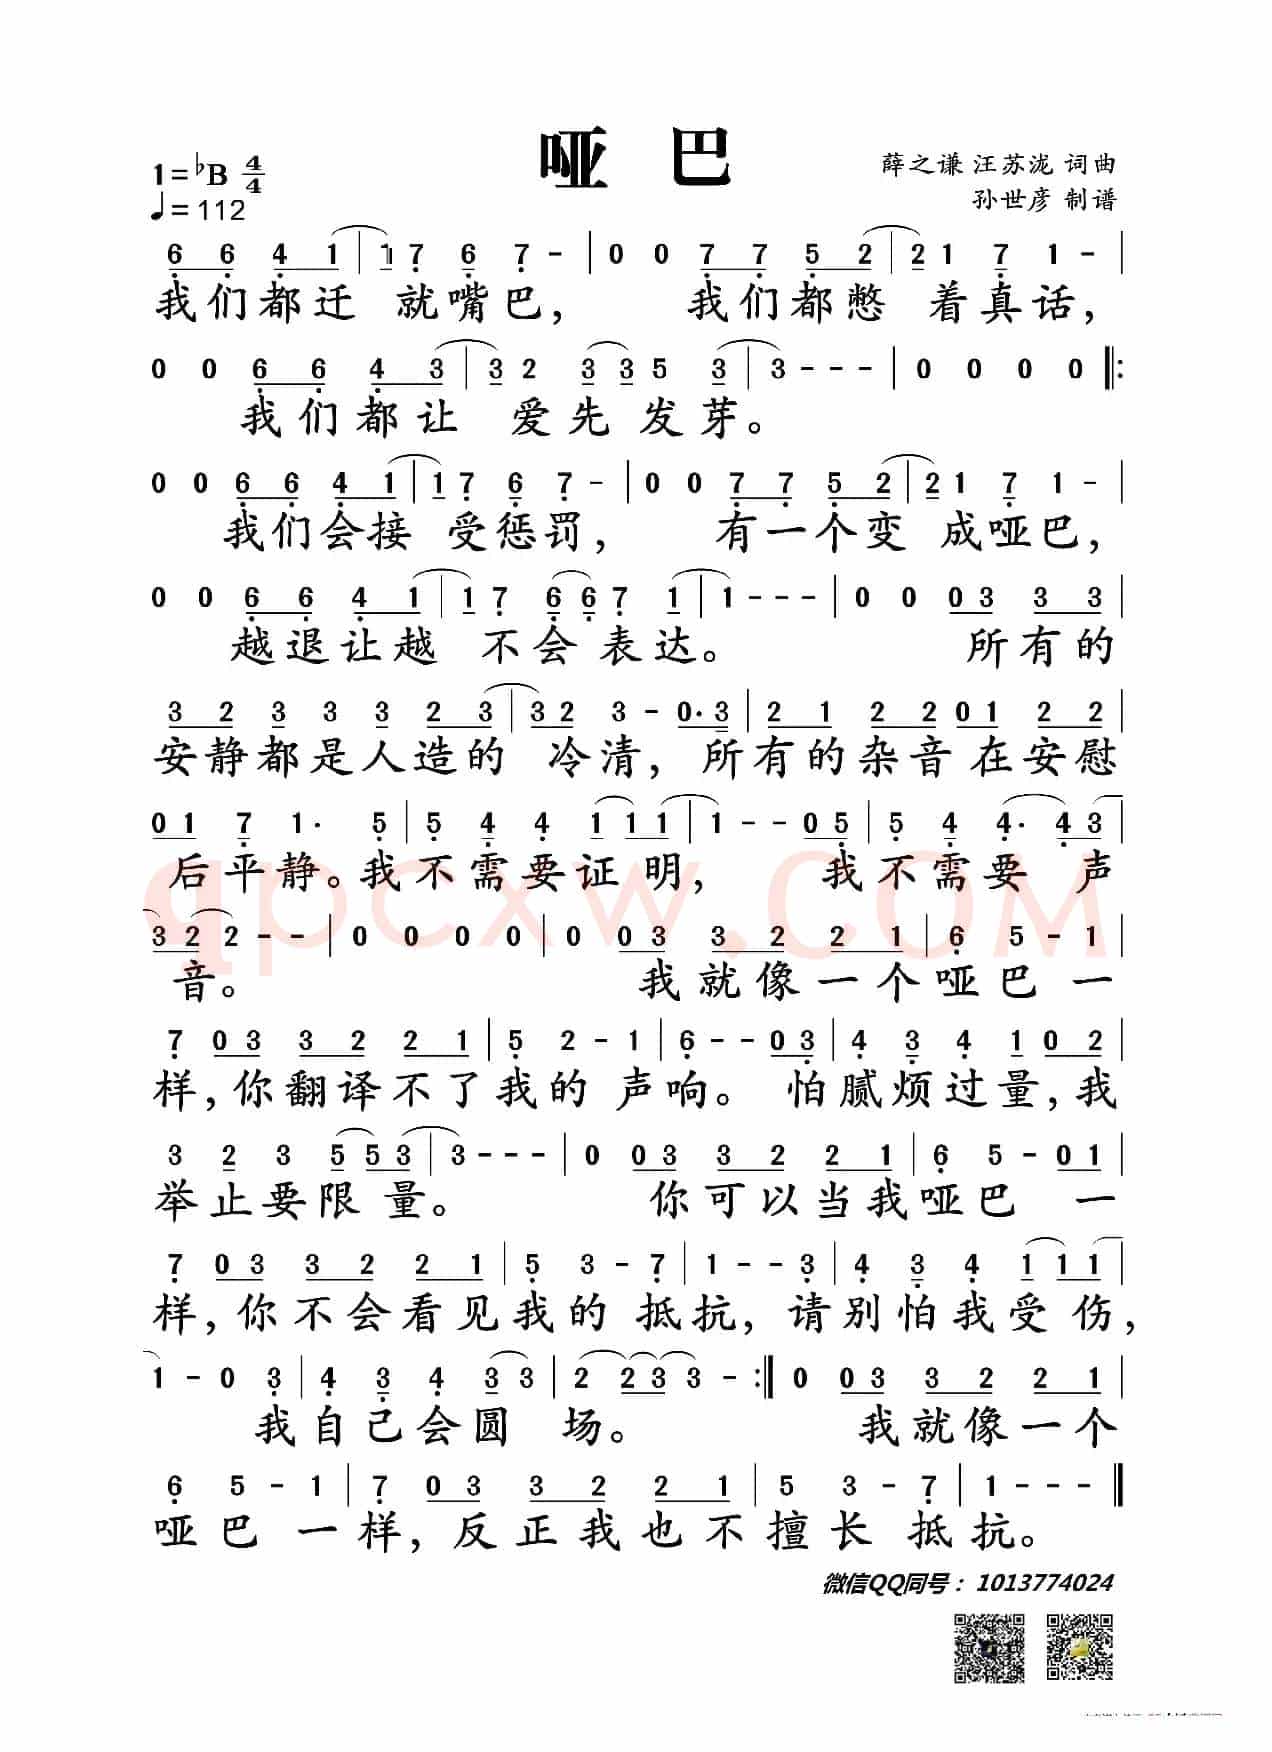 哑 巴
1=♭B 4/4
♩=112
薛之谦 汪苏泷 词曲
孙世彦 制谱
6 6 4 1 | 1 7 6 7 - | 0 0 7 7 5 2 | 2 1 7 1 - |
我们都迁 就嘴巴, 我们都憋 着真话,
0 0 6 6 4 3 | 3 2 3 3 5 3 | 3 - - - | 0 0 0 0 ‖:
我们都让 爱先发芽。
0 0 6 6 4 1 | 1 7 6 7 - | 0 0 7 7 5 2 | 2 1 7 1 - |
我们会接 受惩罚, 有一个变 成哑巴,
0 0 6 6 4 1 | 1 7 6 6 7 1 | 1 - - - | 0 0 0 3 3 3 |
越退让越 不会表达。 所有的
3 2 3 3 3 2 3 | 3 2 3 - 0· 3 | 2 1 2 2 0 1 2 2 |
安静都是人造的 冷清, 所有的杂音在安慰
0 1 7 1· 5 | 5 4 4 1 1 1 | 1 - - 0 5 | 5 4 4· 4 3 |
后平静。我不需要证明, 我不需要声
3 2 2 - - | 0 0 0 0 | 0 0 3 3 2 2 1 | 6 5 - 1 |
音。 我就像一个哑巴一
7 0 3 3 2 2 1 | 5 2 - 1 | 6 - - 0 3 | 4 3 4 1 0 2 |
样, 你翻译不了我的声响。 怕腻烦过量, 我
3 2 3 5 5 3 | 3 - - - | 0 0 3 3 2 2 1 | 6 5 - 0 1 |
举止要限量。 你可以当我哑巴一
7 0 3 3 2 2 1 | 5 3 - 7 | 1 - - 3 | 4 3 4 1 1 1 |
样, 你不会看见我的抵抗, 请别怕我受伤,
1 - 0 3 | 4 3 4 3 3 | 2 2 3 3 - :‖ 0 0 3 3 2 2 1 |
我自己会圆场。 我就像一个
6 5 - 1 | 7 0 3 3 2 2 1 | 5 3 - 7 | 1 - - - ‖
哑巴一样, 反正我也不擅长抵抗。
微信QQ同号：1013774024
qpcxw.COM